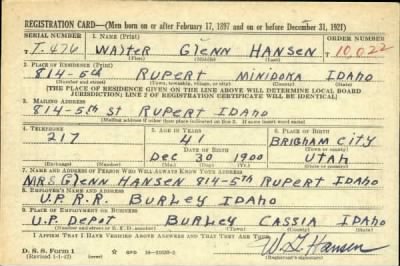 REGISTRATION CARD—(Men born on or after February 17, 1897 and on or before December 31, 1921)
SERIAL NUMBER 1. NAME (Print) ORDER NUMBER
T. 476 WALTER GLENN HANSEN 10,022
(First) (Middle) (Last)
2. PLACE OF RESIDENCE (Print)
814-5th RUPERT MINIDOKA IDAHO
(Number and street) (Town, township, village, or city) (County) (State)
[THE PLACE OF RESIDENCE GIVEN ON THE LINE ABOVE WILL DETERMINE LOCAL BOARD
JURISDICTION; LINE 2 OF REGISTRATION CERTIFICATE WILL BE IDENTICAL]
3. MAILING ADDRESS
814-5th ST RUPERT IDAHO
[Mailing address if other than place indicated on line 2. If same insert word same]
4. TELEPHONE 5. AGE IN YEARS 6. PLACE OF BIRTH
217 41 BRIGHAM CITY
DATE OF BIRTH (Town or county)
DEC 30 1900 UTAH
(Exchange) (Number) (Mo.) (Day) (Yr.) (State or country)
7. NAME AND ADDRESS OF PERSON WHO WILL ALWAYS KNOW YOUR ADDRESS
MRS GLENN HANSEN 814-5TH RUPERT IDAHO
8. EMPLOYER'S NAME AND ADDRESS
U.P.R.R. BURLEY IDAHO
9. PLACE OF EMPLOYMENT OR BUSINESS
U.P. DEPOT BURLEY CASSIA IDAHO
(Number and street or R. F. D. number) (Town) (County) (State)
I AFFIRM THAT I HAVE VERIFIED ABOVE ANSWERS AND THAT THEY ARE TRUE.
D. S. S. Form 1
(Revised 1-1-42) (over)
W. G. Hansen
(Registrant's signature)